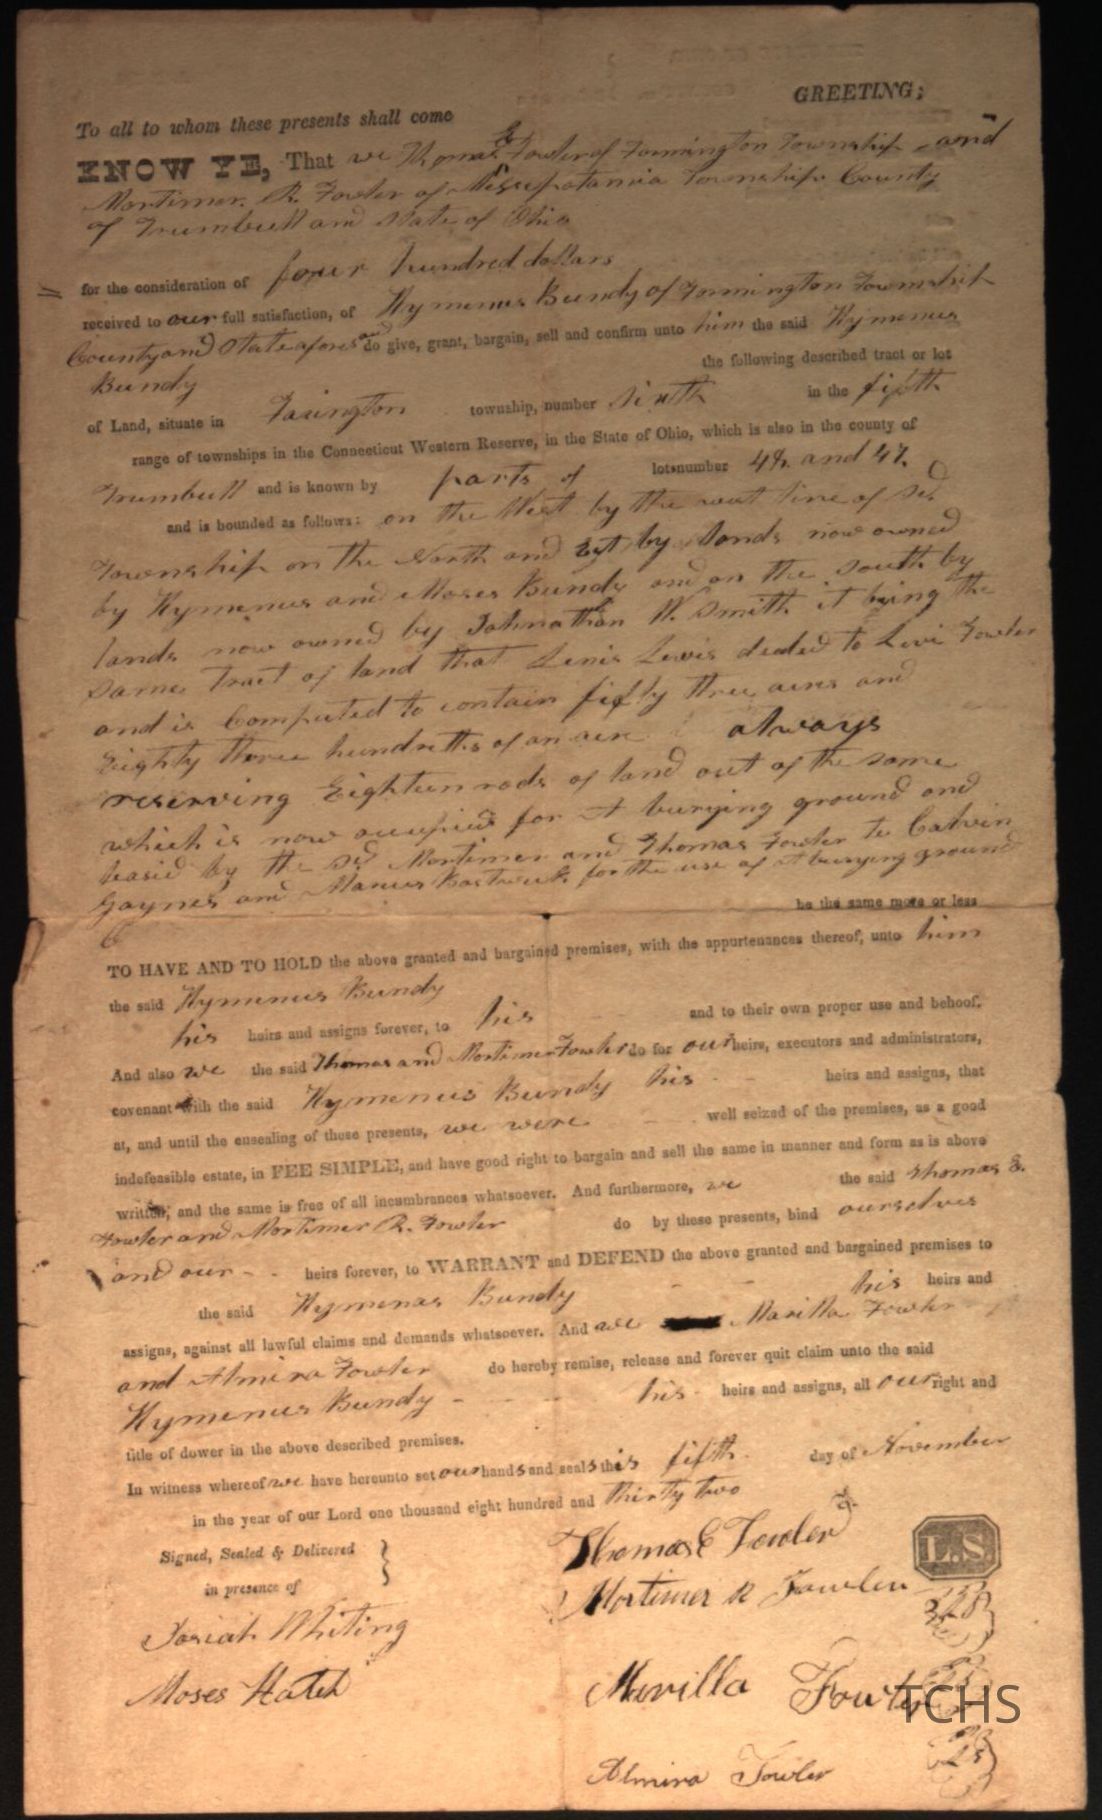 GREETING;
To all to whom these presents shall come
KNOW YE, That we Thomas E Fowler of Farmington Township and
Mortimer. R. Fowler of Messepotamia Township County
of Trumbull and State of Ohio
for the consideration of four hundred dollars
received to our full satisfaction, of Hymenus Bundy of Farmington Township
County and State afores and do give, grant, bargain, sell and confirm unto him the said Hymenus
Bundy the following described tract or lot
of Land, situate in Farington township, number sixth in the fifth
range of townships in the Connecticut Western Reserve, in the State of Ohio, which is also in the county of
Trumbull and is known by parts of lots number 48. and 47.
and is bounded as follows: on the West by the west line of sd
Township on the North and Est by Lands now owned
by Hymenus and Moses Bundy and on the South by
lands now owned by Johnathan W. Smith it being the
Same tract of land that Lewis deeded to Levi Fowler
and is Computed to contain fifty three acres and
Eighty three hundreths of an acre always
reserving Eighteen rods of land out of the same
which is now occupied for A burying ground and
leasid by the sd Mortimer and Thomas Fowler to Calvin
Gaynes and Bostwick for the use of A burying ground
be the same more or less
TO HAVE AND TO HOLD the above granted and bargained premises, with the appurtenances thereof, unto him
the said Hymenus Bundy
his heirs and assigns forever, to his and to their own proper use and behoof.
And also we the said Thomas and Mortimer Fowler do for our heirs, executors and administrators,
covenant with the said Hymenus Bundy his heirs and assigns, that
at, and until the ensealing of these presents, we were well seized of the premises, as a good
indefeasible estate, in FEE SIMPLE, and have good right to bargain and sell the same in manner and form as is above
written; and the same is free of all incumbrances whatsoever. And furthermore, we the said Thomas E.
Fowler and Mortimer R. Fowler do by these presents, bind ourselves
and our - - heirs forever, to WARRANT and DEFEND the above granted and bargained premises to
the said Hymenas Bundy - - his heirs and
assigns, against all lawful claims and demands whatsoever. And we Marilla Fowler
and Almira Fowler do hereby remise, release and forever quit claim unto the said
Hymenus Bundy - his heirs and assigns, all our right and
title of dower in the above described premises.
In witness whereof we have hereunto set our hands and seals this fifth day of November
in the year of our Lord one thousand eight hundred and thirty two
Signed, Sealed & Delivered
in presence of
Thomas E Fowler L.S.
Mortimer R Fowler
Josiah Whiting
Moses Hatch
Marilla Fowler
TCHS
Almira Fowler